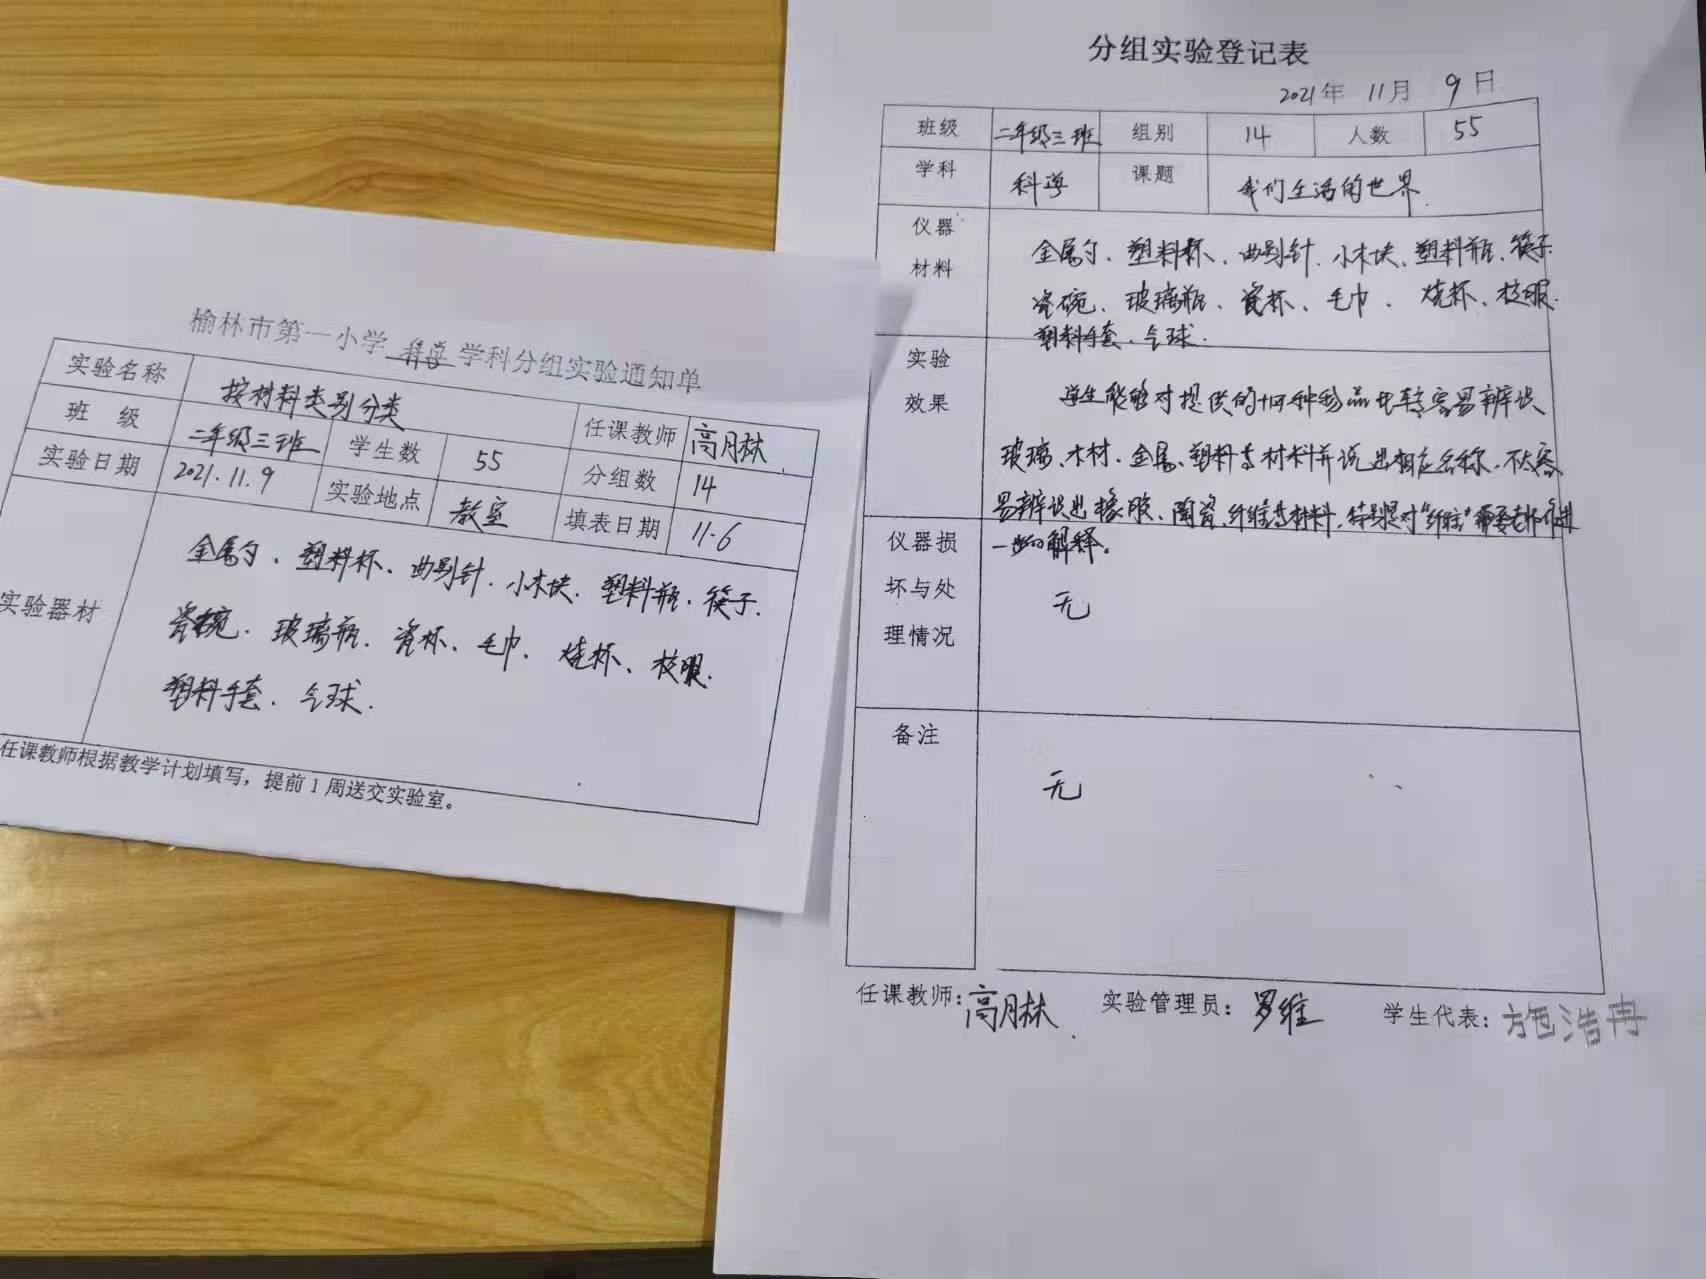 榆林市第一小学 科学 学科分组实验通知单
实验名称 按材料类别分类 任课教师 高月林
班 级 二年级三班 学生数 55 分组数 14
实验日期 2021.11.9 实验地点 教室 填表日期 11.6
实验器材
金属勺、塑料杯、曲别针、小木块、塑料瓶、筷子、
瓷碗、玻璃瓶、瓷杯、毛巾、烧杯、校服、
塑料手套、气球.
任课教师根据教学计划填写，提前1周送交实验室。
分组实验登记表
2021年 11月 9日
班级 二年级三班 组别 14 人数 55
学科 科学 课题 我们生活的世界.
仪器
材料
金属勺、塑料杯、曲别针、小木块、塑料瓶、筷子
瓷碗、玻璃瓶、瓷杯、毛巾、烧杯、校服.
塑料手套、气球.
实验
效果
学生能够对提供的十四种物品比较容易辨识
玻璃、木材、金属、塑料等材料并说出相应名称.不太容
易辨识出橡胶、陶瓷、纤维等材料，特别是对“纤维”需要老师作进
一步的解释。
仪器损
坏与处
理情况
无
备注
无
任课教师：高月林 实验管理员：罗维 学生代表：施浩冉